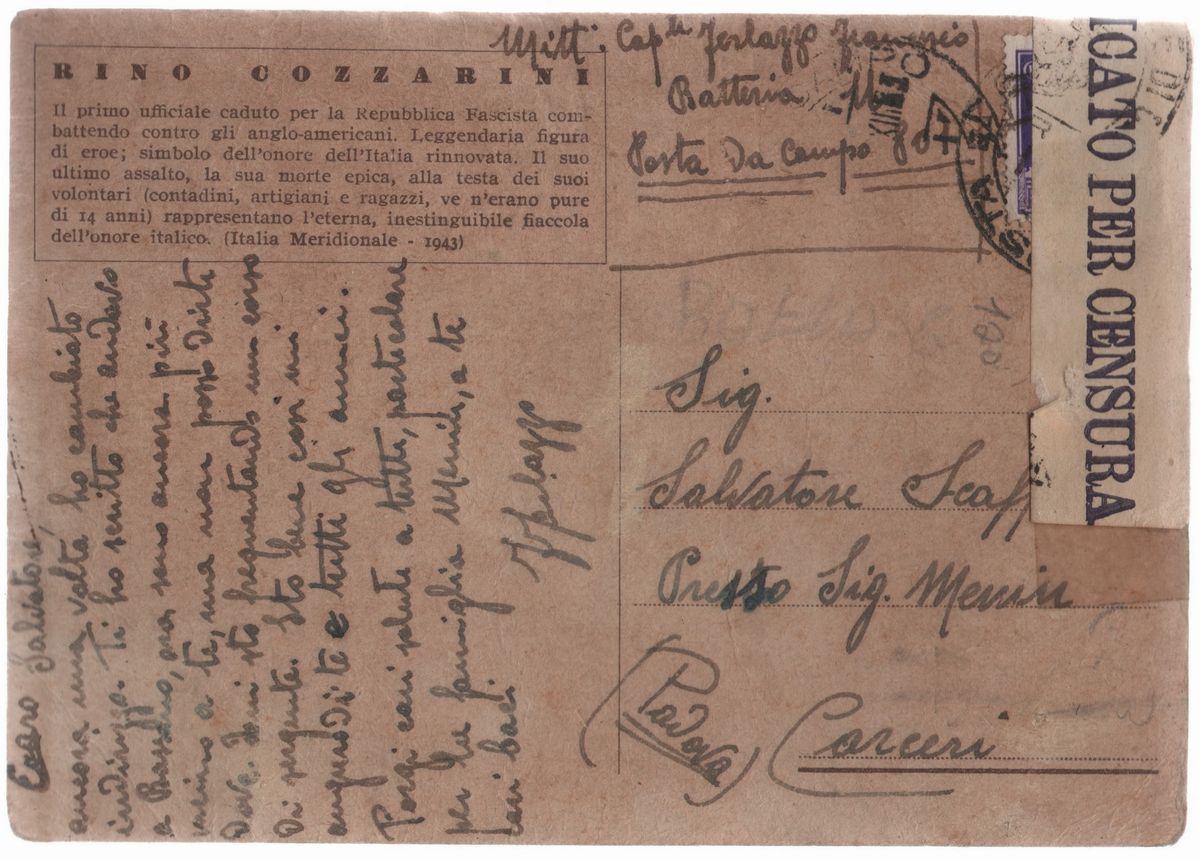 RINO COZZARINI
Il primo ufficiale caduto per la Repubblica Fascista com-
battendo contro gli anglo-americani. Leggendaria figura
di eroe; simbolo dell'onore dell'Italia rinnovata. Il suo
ultimo assalto, la sua morte epica, alla testa dei suoi
volontari (contadini, artigiani e ragazzi, ve n'erano pure
di 14 anni) rappresentano l'eterna, inestinguibile fiaccola
dell'onore italico. (Italia Meridionale - 1943)
Mitt:
Batteria
Posta da Campo
STA
ICATO PER CENSURA
100
Sig.
Salvatore Scaff
Presso Sig. Menin
(Padova) Carceri
Caro Salvatore,
ancora una volta ho cambiato
indirizzo. Ti ho scritto che andavo
a Bassano, ora sono ancora più
vicino a te, ma non posso dirti
dove. Qui sto frequentando un corso
di sergente. Sto bene così mi
auguro di te e tutti gli amici.
Porgi cari saluti a tutti, particolare
per la famiglia Menin, a te
cari baci.